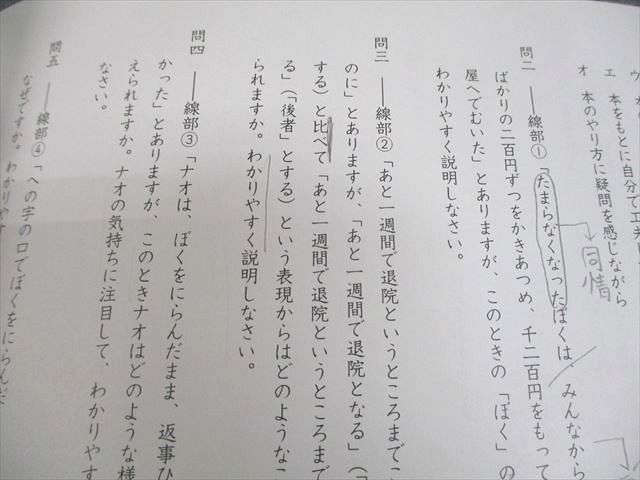 ウ 本
エ 本をもとに自分で工夫し
オ 本のやり方に疑問を感じながら
問二 ――線部①「たまらなくなったぼくは、みんなから
ばかりの二百円ずつをかきあつめ、千二百円をもって
屋へでむいた」とありますが、このときの「ぼく」の
わかりやすく説明しなさい。
同情
問三 ――線部②「あと一週間で退院というところまでこ
のに」とありますが、「あと一週間で退院となる」(「
する)と比べて「あと一週間で退院というところまで
る」(「後者」とする)という表現からはどのようなこ
られますか。わかりやすく説明しなさい。
問四 ――線部③「ナオは、ぼくをにらんだまま、返事ひ
かった」とありますが、このときナオはどのような様
えられますか。ナオの気持ちに注目して、わかりやす
なさい。
問五 ――線部④「への字の口でぼくをにらんだ
なぜですか。わかりやす